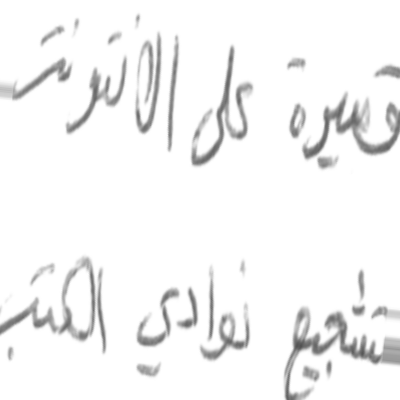 قصيرة على الانترنت
تشجيع نوادي الكتب